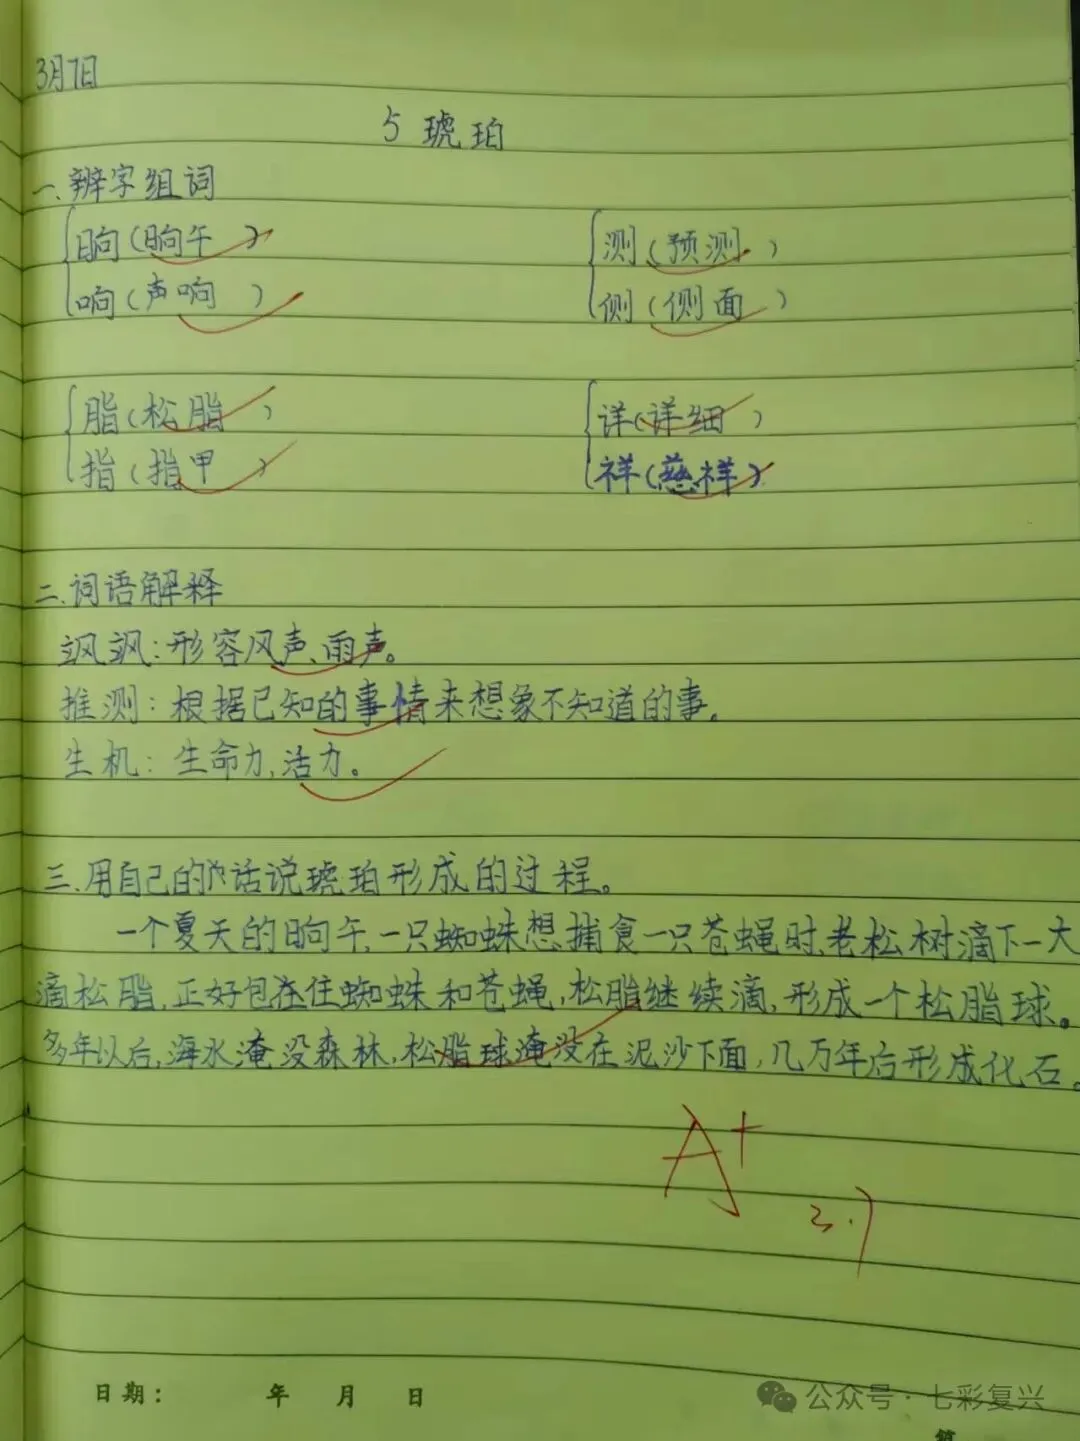 3月7日
5 琥珀
一、辨字组词
晌(晌午) 测(预测)
响(声响) 侧(侧面)
脂(松脂) 详(详细)
指(指甲) 祥(慈祥)
二、词语解释
飒飒：形容风声、雨声。
推测：根据已知的事情来想象不知道的事。
生机：生命力,活力。
三、用自己的话说琥珀形成的过程。
一个夏天的晌午,一只蜘蛛想捕食一只苍蝇时,老松树滴下一大
滴松脂,正好包在住蜘蛛和苍蝇,松脂继续滴,形成一个松脂球。
多年以后,海水淹没森林,松脂球淹没在泥沙下面,几万年后形成化石。
A+
3.7
日期： 年 月 日
公众号·七彩复兴
第